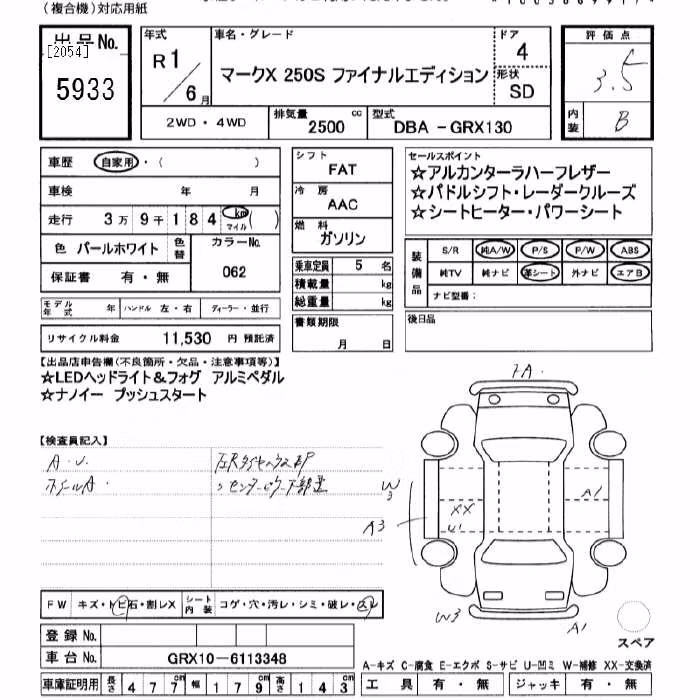 (複合機)対応用紙
出品No. [2054] 5933
年式 R1/6月
車名・グレード マークX 250S ファイナルエディション
ドア 4
形状 SD
評価点 3.5
内装 B
2WD・4WD 排気量 2500 cc 型式 DBA-GRX130
車歴 自家用・( )
車検 年 月
走行 3万9千184 km マイル ( )
色 パールホワイト 色替 カラーNo. 062
保証書 有・無
シフト FAT
冷房 AAC
燃料 ガソリン
乗車定員 5 名
積載量 kg
総重量 kg
書類期限 月 日
セールスポイント
☆アルカンターラハーフレザー
☆パドルシフト・レーダークルーズ
☆シートヒーター・パワーシート
装備品 S/R 純A/W P/S P/W ABS
純TV 純ナビ 革シート 外ナビ エアB
ナビ型番:
後日品
モデル年式 年 ハンドル 左・右 ディーラー・並行
リサイクル料金 11,530 円 預託済
【出品店申告欄(不良箇所・欠品・注意事項等)】
☆LEDヘッドライト&フォグ アルミペダル
☆ナノイー プッシュスタート
【検査員記入】
A.U.
ホイールA
FA.
W3
A3
XX
U1
A1
W3
A1
スペア
FW キズ・トビ石・割レX シート内装 コゲ・穴・汚レ・シミ・破レ・スレ
登録No.
車台No. GRX10-6113348
車庫証明用 長さ 477cm 幅 179cm 高さ 143cm
A-キズ C-腐食 E-エクボ S-サビ U-凹ミ W-補修 XX-交換済
工具 有・無 ジャッキ 有・無